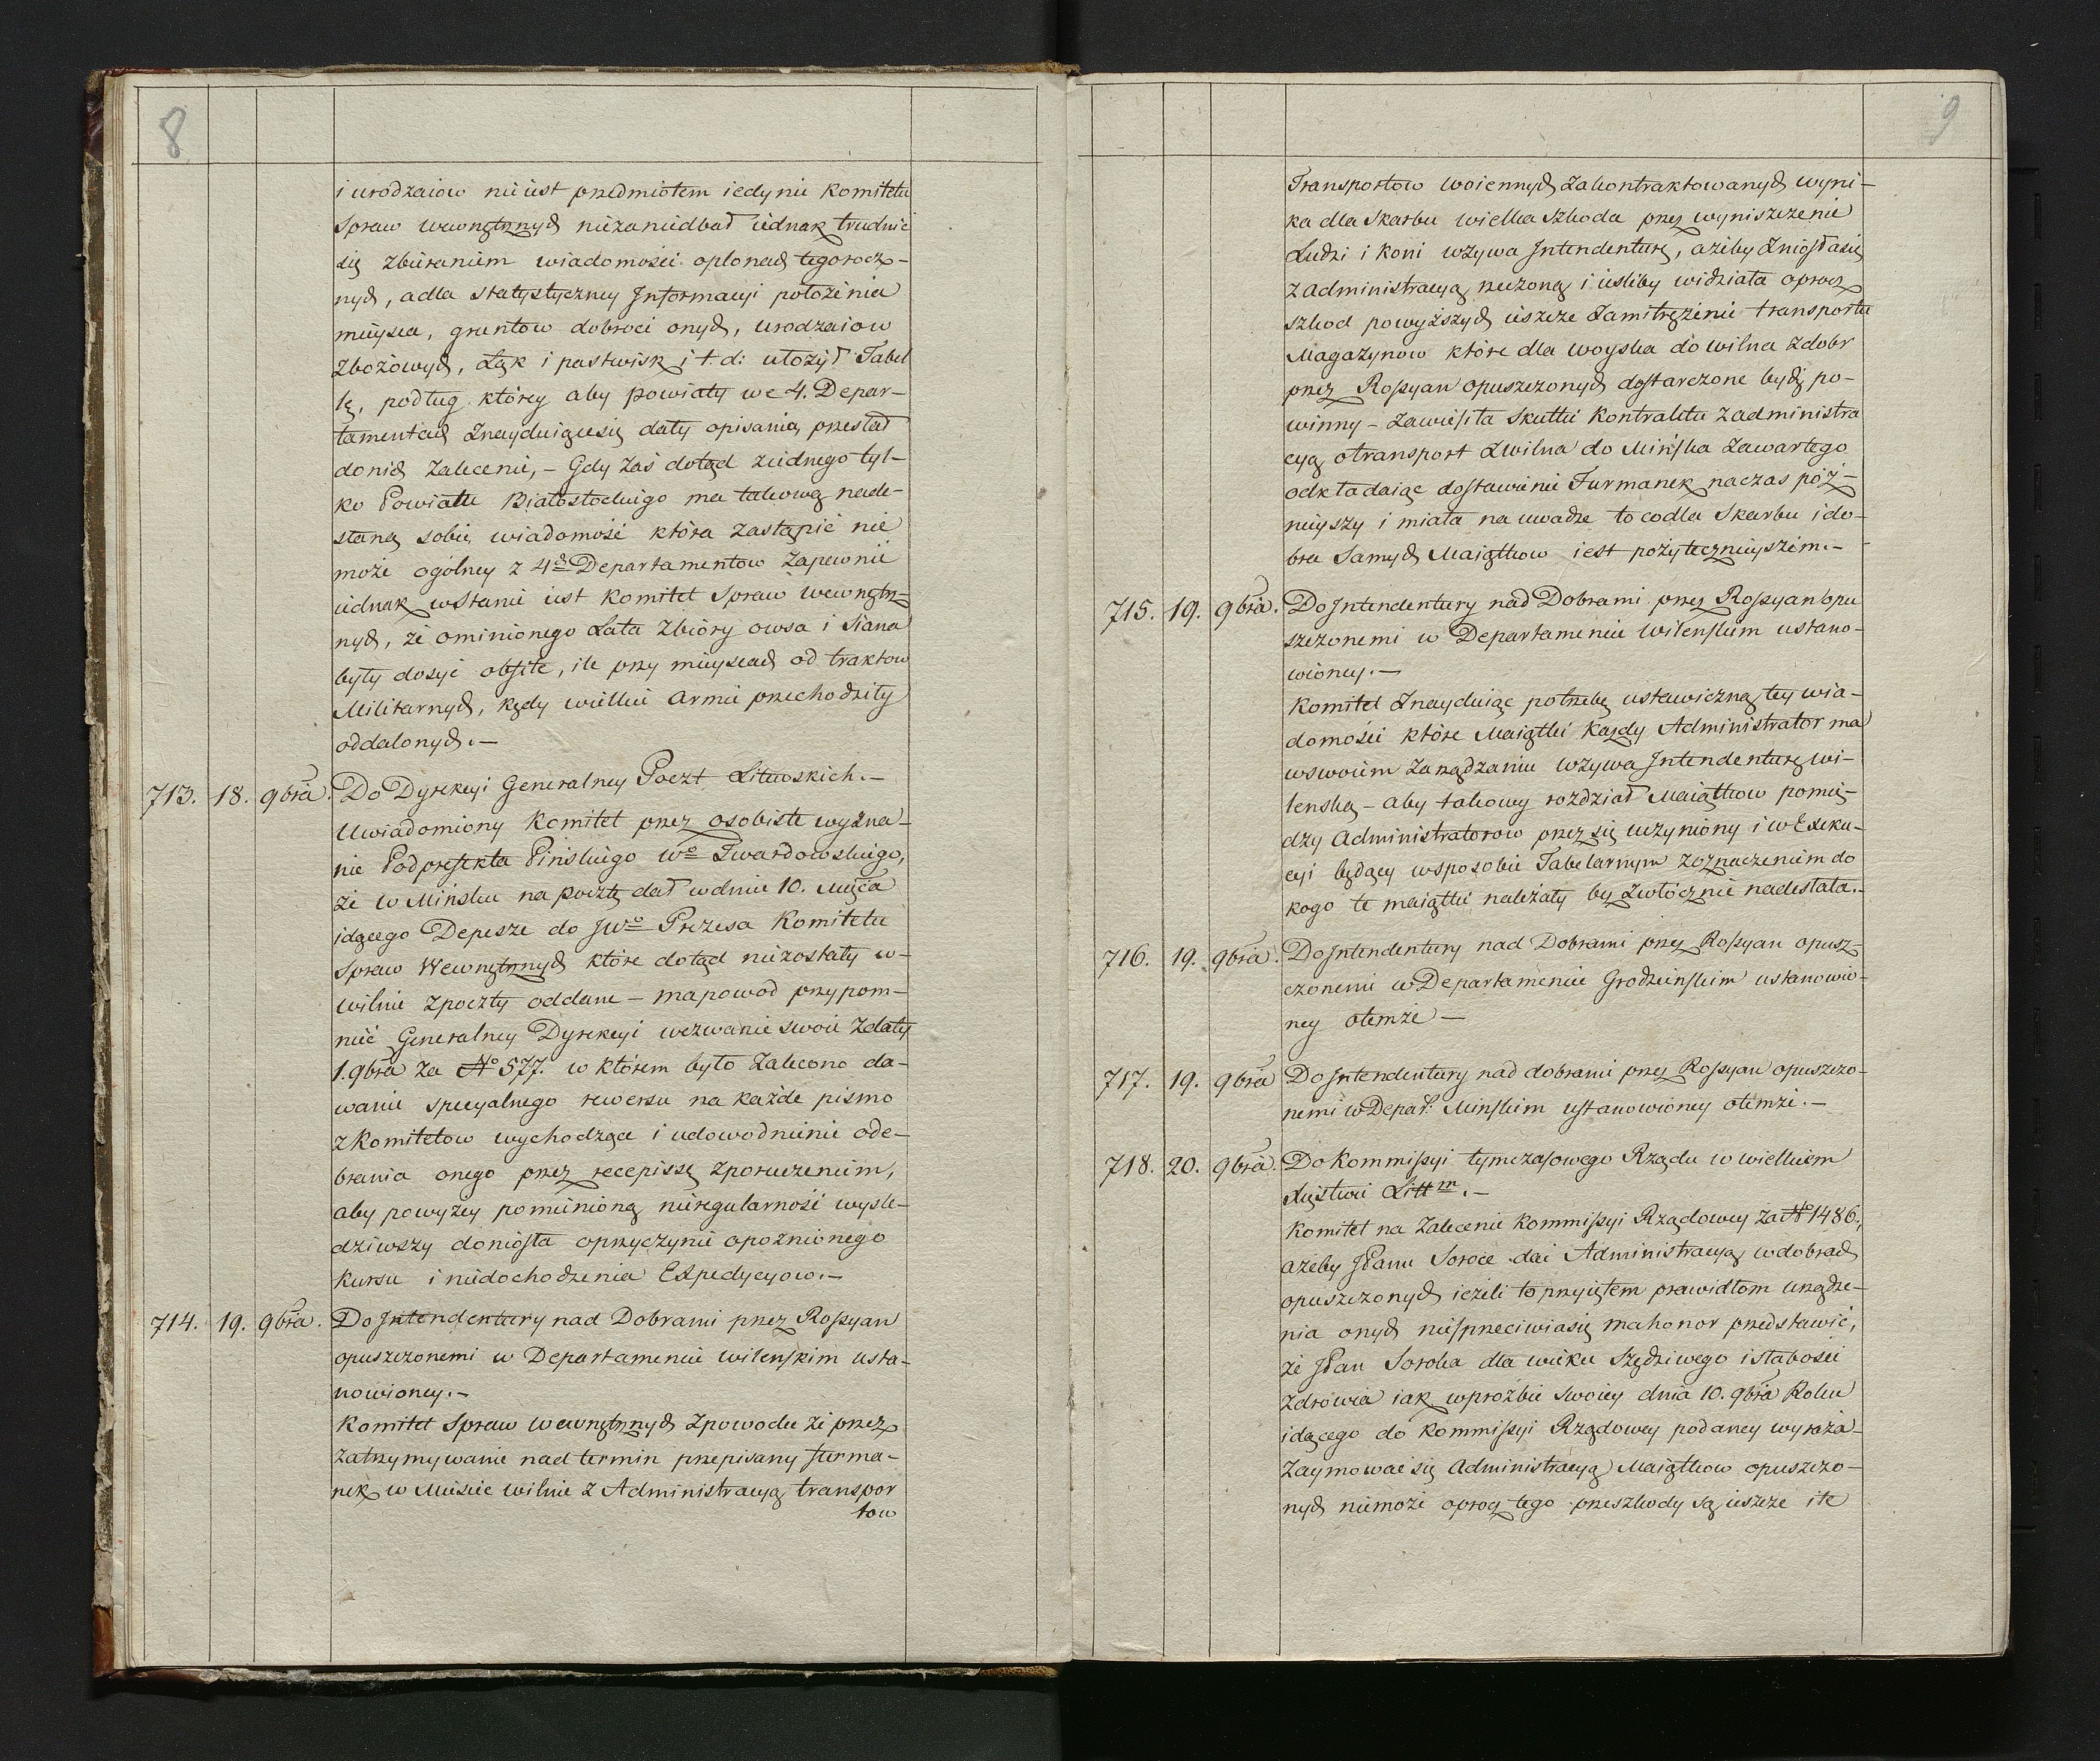 8
i urodzaiow nie iest przedmiotem iedynie Komitetu
Spraw wewnętrznych niezaniedbał iednak trudnić
się zbieraniem wiadomości o plonach tegorocz-
nych, a dla statystyczney Informacyi położenia
mieysca, gruntow dobroci onych, urodzaiow
zbożowych, Łąk i pastwisk i t d: ułożył Tabel
lę, podług którey aby powiaty w 4. Depar-
tamentach znayduiące się dały opisania, przesłał
do nich zalecenie, – Gdy zaś dotąd z iednego tyl-
ko Powiatu Białostockiego ma takową nade-
słaną sobie wiadomość która zastąpić nie
może ogólney z 4ch Departamentow zapewnić
iednak w stanie iest Komitet Spraw wewnętrz-
nych, że ominionego Lata zbiory owsa i siana
były dosyć obfite, ile przy mieyscach od traktow
Militarnych, kędy wielkie Armie przechodziły
oddalonych. –
713. 18. 9bra. Do Dyrekcyi Generalney Poczt Litewskich. –
Uwiadomiony Komitet przez osobiste wyzna-
nie Podprefekta Pińskiego Wo Twardowskiego,
że w Mińsku na pocztę dał w dniu 10. Mięca
idącego Depesze do JWo Prezesa Komitetu
Spraw Wewnętrznych które dotąd nie zostały w-
wilnie z poczty oddane – ma powod przypom-
nieć Generalney Dyrekcyi wezwanie swoie z daty
1. 9bra za No 577. w którem było zalecono da-
wanie specyalnego rewersu na każde pismo
z Komitetow wychodzące i udowodnienie ode-
brania onego przez recepissę z poruczeniem,
aby powyżey pomienioną nieregularność wyśle-
dziwszy doniosła o przyczynie opoznionego
kursu i niedochodzenia Expedycyow. –
714. 19. 9bra. Do Intendentury nad Dobrami przez Rossyan
opuszczonemi w Departamencie wileńskim usta-
nowioney. –
Komitet Spraw wewnętrznych z powodu że przez
zatrzymywanie nad termin przepisany furma-
nek w Mieście wilnie z Administracyą transpor
tow
9
Transportow woiennych zakontraktowanych wyni-
ka dla Skarbu wielka szkoda przez wyniszczenie
Ludzi i koni wzywa Intendenturę, ażeby zniosła się
z administracyą rzeczoną i iesliby widziała oprocz
szkod powyższych ieszcze zamitrężenie transportu
Magazynow które dla woyska do wilna z dobr
przez Rossyan opuszczonych dostarczone bydź po-
winny – zawiesiła skutki kontraktu z administra
cyą o transport z Wilna do Mińska zawartego
odkładaiąc dostawienie Furmanek na czas póź-
nieyszy i miała na uwadze to co dla Skarbu i do-
bra samych Maiątkow iest pożytecznieyszem. –
715. 19. 9bra. Do Intendentury nad Dobrami przez Rossyan opu
szczonemi w Departamencie wileńskim ustano-
wioney. –
Komitet znayduiąc potrzebę ustawiczną tey wia-
domości które Maiątki każdy Administrator ma
w swoiem zarządzaniu wzywa Intendenturę wi-
leńską – aby takowy rozdział Maiątkow pomię-
dzy administratorow przez się uczyniony i w Exeku-
cyi będący w sposobie Tabelarnym z oznaczeniem do
kogo te maiątki należały by zwłócznie nadesłała. –
716. 19. 9bra. Do Intendentury nad Dobrami przez Rossyan opusz-
czonemi w Departamencie Grodzieńskim ustanowio-
ney o temże –
717. 19. 9bra Do Intendentury nad dobrami przez Rossyan opuszczo-
nemi w Depart: Mińskim ustanowioney o temże. –
718. 20. 9bra. Do Kommissyi tymczasowego Rządu w wielkiem
Xięstwie Littm. –
Komitet na zalecenie Kommissyi Rządowey za No 1486.,
ażeby JPanu Soroce dać Administracyą w dobrach
opuszczonych ieżeli to przyiętem prawidłom urządze-
nia onych nie sprzeciwia się ma honor przedstawić,
że JPan Soroka dla wieku szędziwego i słabości
zdrowia iak w prożbie swoiey dnia 10. 9bra Roku
idącego do Kommissyi Rządowey podaney wyraża
zaymować się administracyą Maiątkow opuszczo-
nych nie może oprocz tego przeszkody są ieszcze ile